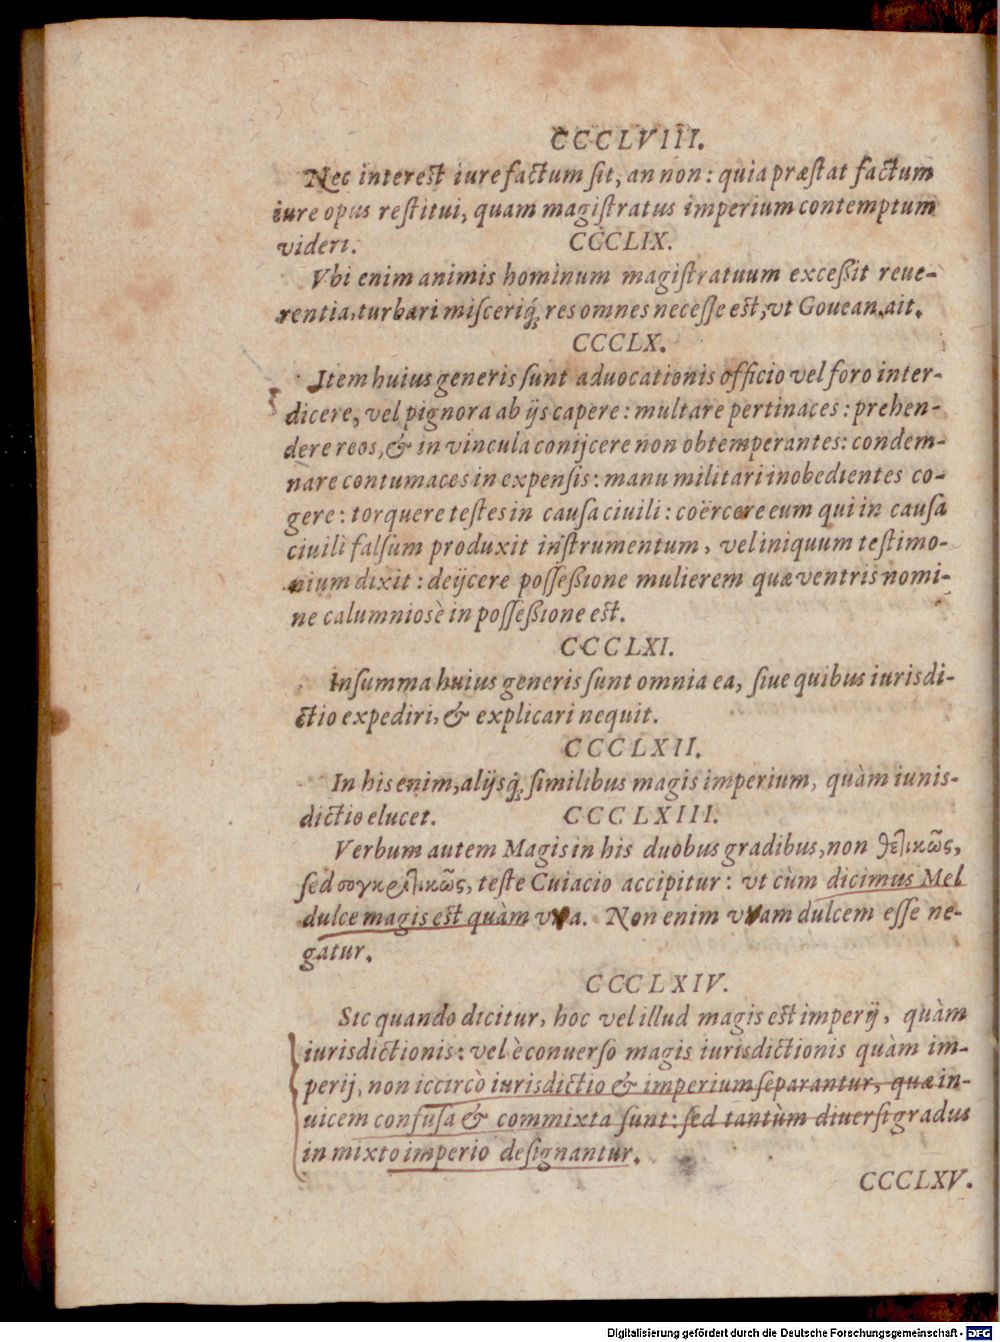 CCCLVIII.
Nec interest iure factum sit, an non: quia præstat factum
iure opus restitui, quam magistratus imperium contemptum
videri. CCCLIX.
Vbi enim animis hominum magistratuum excessit reue-
rentia, turbari misceriq́; res omnes necesse est, vt Gouean. ait.
CCCLX.
Item huius generis sunt aduocationis officio vel foro inter-
dicere, vel pignora ab ijs capere: multare pertinaces: prehen-
dere reos, & in vincula conijcere non obtemperantes: condem-
nare contumaces in expensis: manu militari inobedientes co-
gere: torquere testes in causa ciuili: coërcere eum qui in causa
ciuili falsum produxit instrumentum, vel iniquum testimo-
nium dixit: deijcere possessione mulierem quæ ventris nomi-
ne calumniosè in possessione est.
CCCLXI.
In summa huius generis sunt omnia ea, siue quibus iurisdi-
ctio expediri, & explicari nequit.
CCCLXII.
In his enim, alijsq́; similibus magis imperium, quàm iunis-
dictio elucet. CCCLXIII.
Verbum autem Magis in his duobus gradibus, non θελικῶς,
sed συγκρλικῶς, teste Cuiacio accipitur: vt cùm dicimus Mel
dulce magis est quàm vva. Non enim vvam dulcem esse ne-
gatur.
CCCLXIV.
Sic quando dicitur, hoc vel illud magis est imperij, quàm
iurisdictionis: vel è conuerso magis iurisdictionis quàm im-
perij, non iccircò iurisdictio & imperium separantur, quæ in-
uicem confusa & commixta sunt: sed tantùm diuersi gradus
in mixto imperio designantur.
CCCLXV.
Digitalisierung gefördert durch die Deutsche Forschungsgemeinschaft - DFG